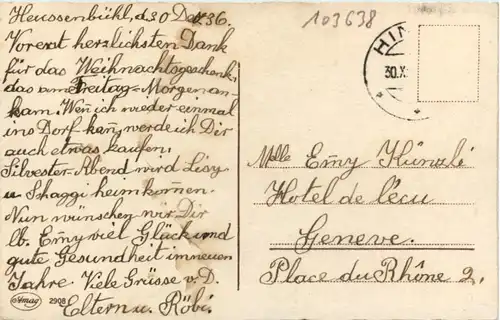 Heussenbühl, d. 30 Dez. 36.
Vorerst herzlichsten Dank
für das Weihnachtsgeschenk,
das am Freitag-Morgen an-
kam. Wen ich wieder einmal
ins Dorf kan, werde ich Dir
auch etwas kaufen.
Silvester-Abend wird Lisy
u. Schaggi heimkomen.
Nun wünschen wir Dir
lb. Emy viel Glück und
gute Gesundheit im neuen
Jahre. Viele Grüsse v. D.
Eltern u. Röbi.
Amag 2908
103638
HIN
30.X
Melle Emy Hünzli
Hotel de l'écu
Geneve.
Place du Rhône 2.